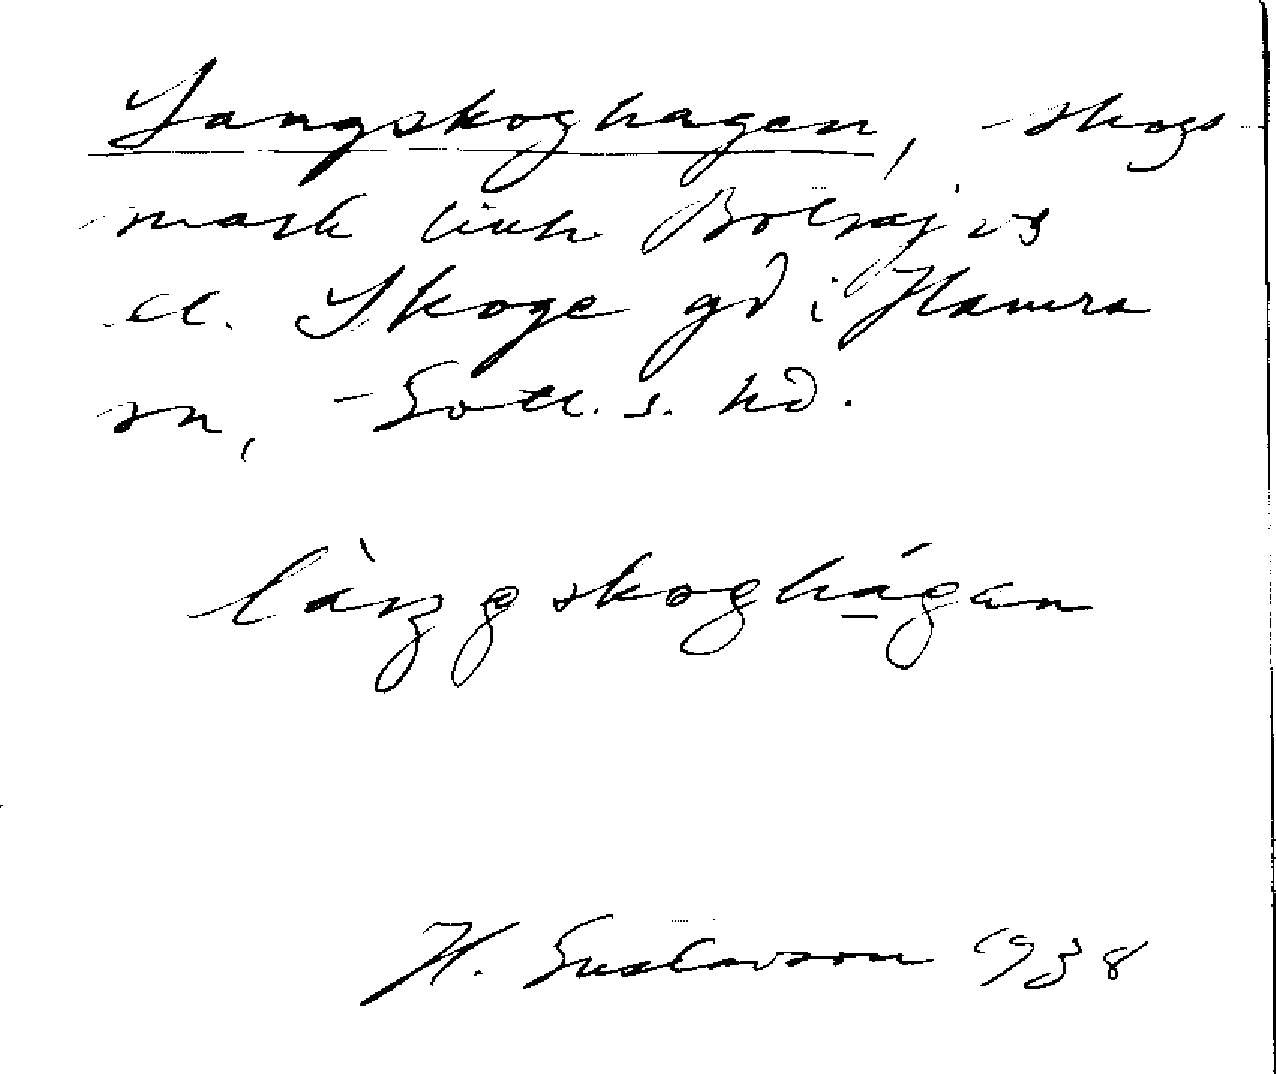 Langskoghagen, skogs-
mark tillh Bolrajvs
el. Skoge gd i Hamra
sn, Gotl. s. hd.
làŋgskoghágan
H. Gustavson 1938